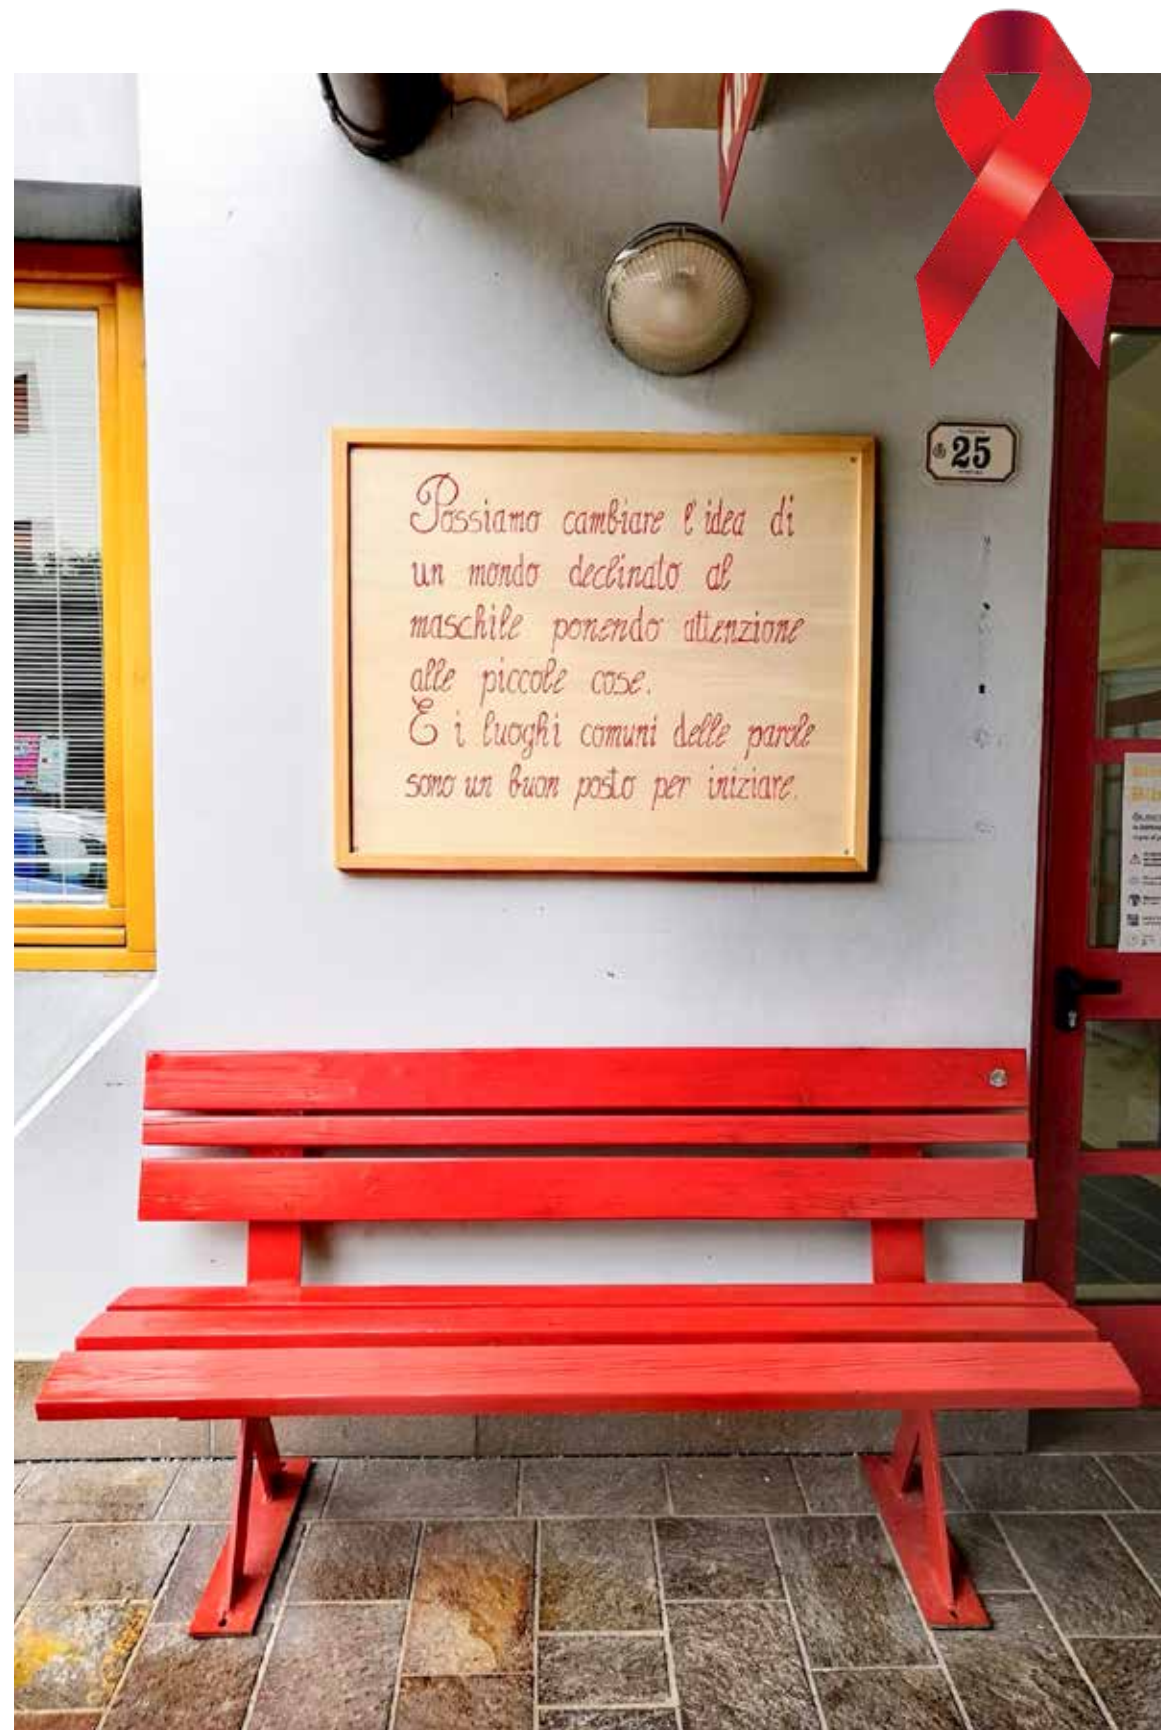 25
Possiamo cambiare l'idea di
un mondo declinato al
maschile ponendo attenzione
alle piccole cose.
E i luoghi comuni delle parole
sono un buon posto per iniziare.